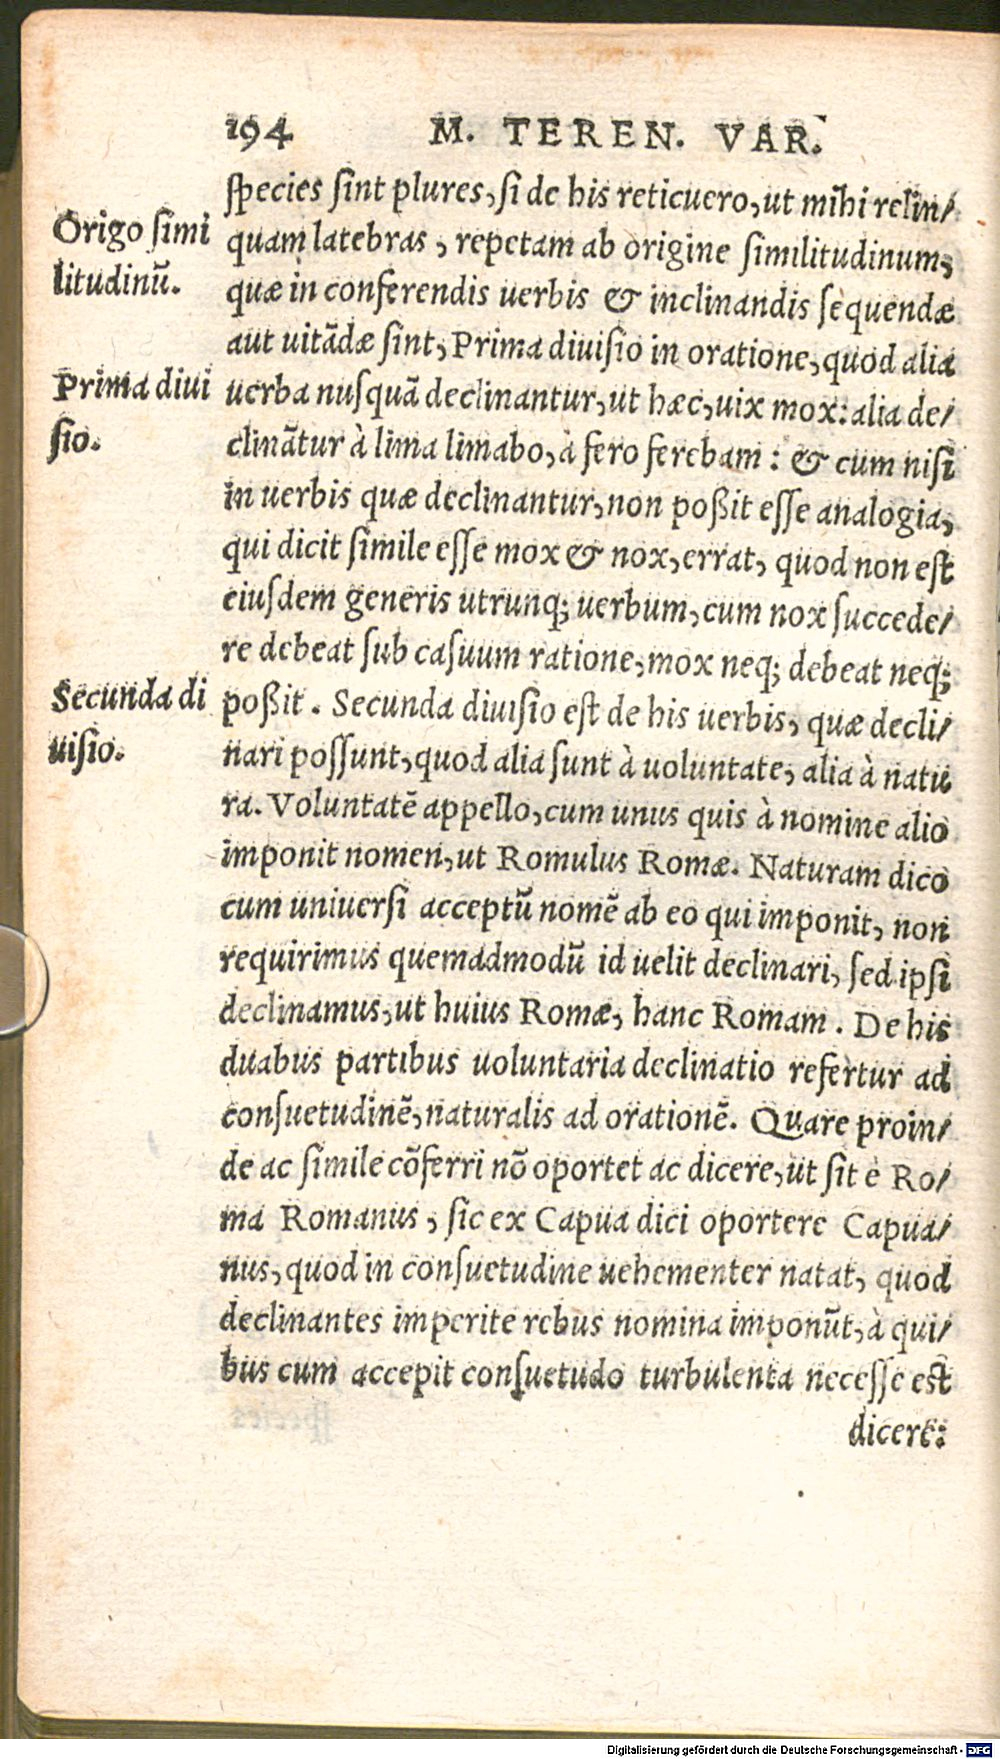 194 M. TEREN. VAR.
ſpecies ſint plures, ſi de his reticuero, ut mihi relin/
Origo ſimi
litudinũ.
quam latebras, repetam ab origine ſimilitudinum,
quæ in conferendis uerbis & inclinandis ſequendæ
aut uitãdæ ſint, Prima diuiſio in oratione, quod alia
Prima diui
ſio.
uerba nuſquã declinantur, ut hæc, uix mox: alia de/
clinãtur à lima limabo, à fero ferebam: & cum niſi
in uerbis quæ declinantur, non poßit eſſe analogia,
qui dicit ſimile eſſe mox & nox, errat, quod non eſt
eiuſdem generis utrunq; uerbum, cum nox ſuccede/
re debeat ſub caſuum ratione, mox neq; debeat neq;
Secunda di
uiſio.
poßit. Secunda diuiſio eſt de his uerbis, quæ decli/
nari poſſunt, quod alia ſunt à uoluntate, alia à natu
ra. Voluntatẽ appello, cum unus quis à nomine alio
imponit nomen, ut Romulus Romæ. Naturam dico
cum uniuerſi acceptũ nomẽ ab eo qui imponit, non
requirimus quemadmodũ id uelit declinari, ſed ipſi
declinamus, ut huius Romæ, hanc Romam. De his
duabus partibus uoluntaria declinatio refertur ad
conſuetudinẽ, naturalis ad orationẽ. Quare proin/
de ac ſimile cõferri nõ oportet ac dicere, ut ſit è Ro/
ma Romanus, ſic ex Capua dici oportere Capua/
nus, quod in conſuetudine uehementer natat, quod
declinantes imperite rebus nomina imponũt, à qui/
bus cum accepit conſuetudo turbulenta neceſſe eſt
dicere:
Digitalisierung gefördert durch die Deutsche Forschungsgemeinschaft - DFG